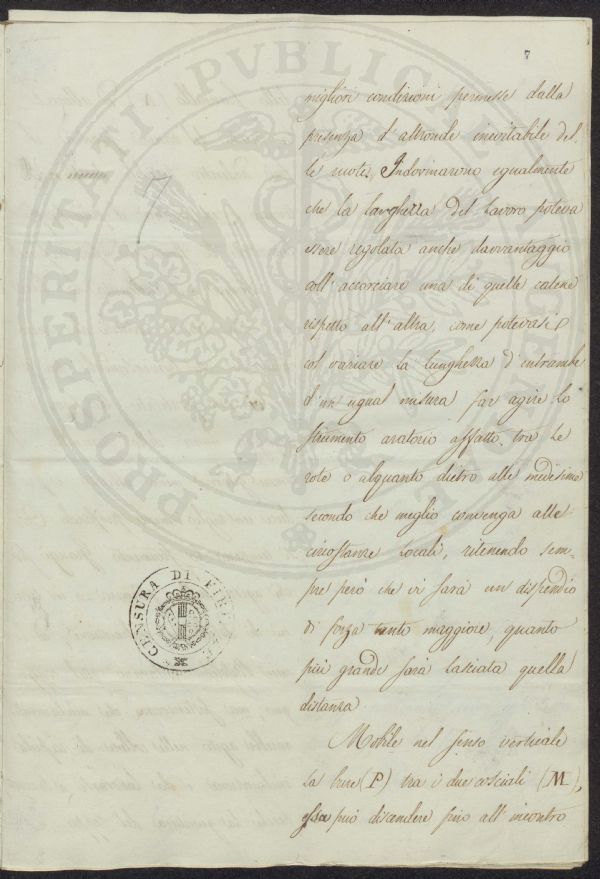 7
migliori condizioni permesse dalla
presenza d'altronde inevitabile del-
le ruote. Indovinarono egualmente
che la larghezza del lavoro poteva
essere regolata anche davvantaggio
coll'accorciare una di quelle catene
rispetto all'altra, come potevasi
col variare la lunghezza d'entrambe
d'un ugual misura far agire lo
strumento aratorio affatto tra le
rote o alquanto dietro alle medesime
secondo che meglio convenga alle
circostanze locali, ritenendo sem-
pre però che vi sarà un dispendio
di forza tanto maggiore, quanto
più grande sarà lasciata quella
distanza.
Mobile nel senso verticale
la bure (P) tra i due cosciali (M),
essa può discendere fino all'incontro
7
CENSURA DI FIRENZE
PROSPERITATI PVBLICAE